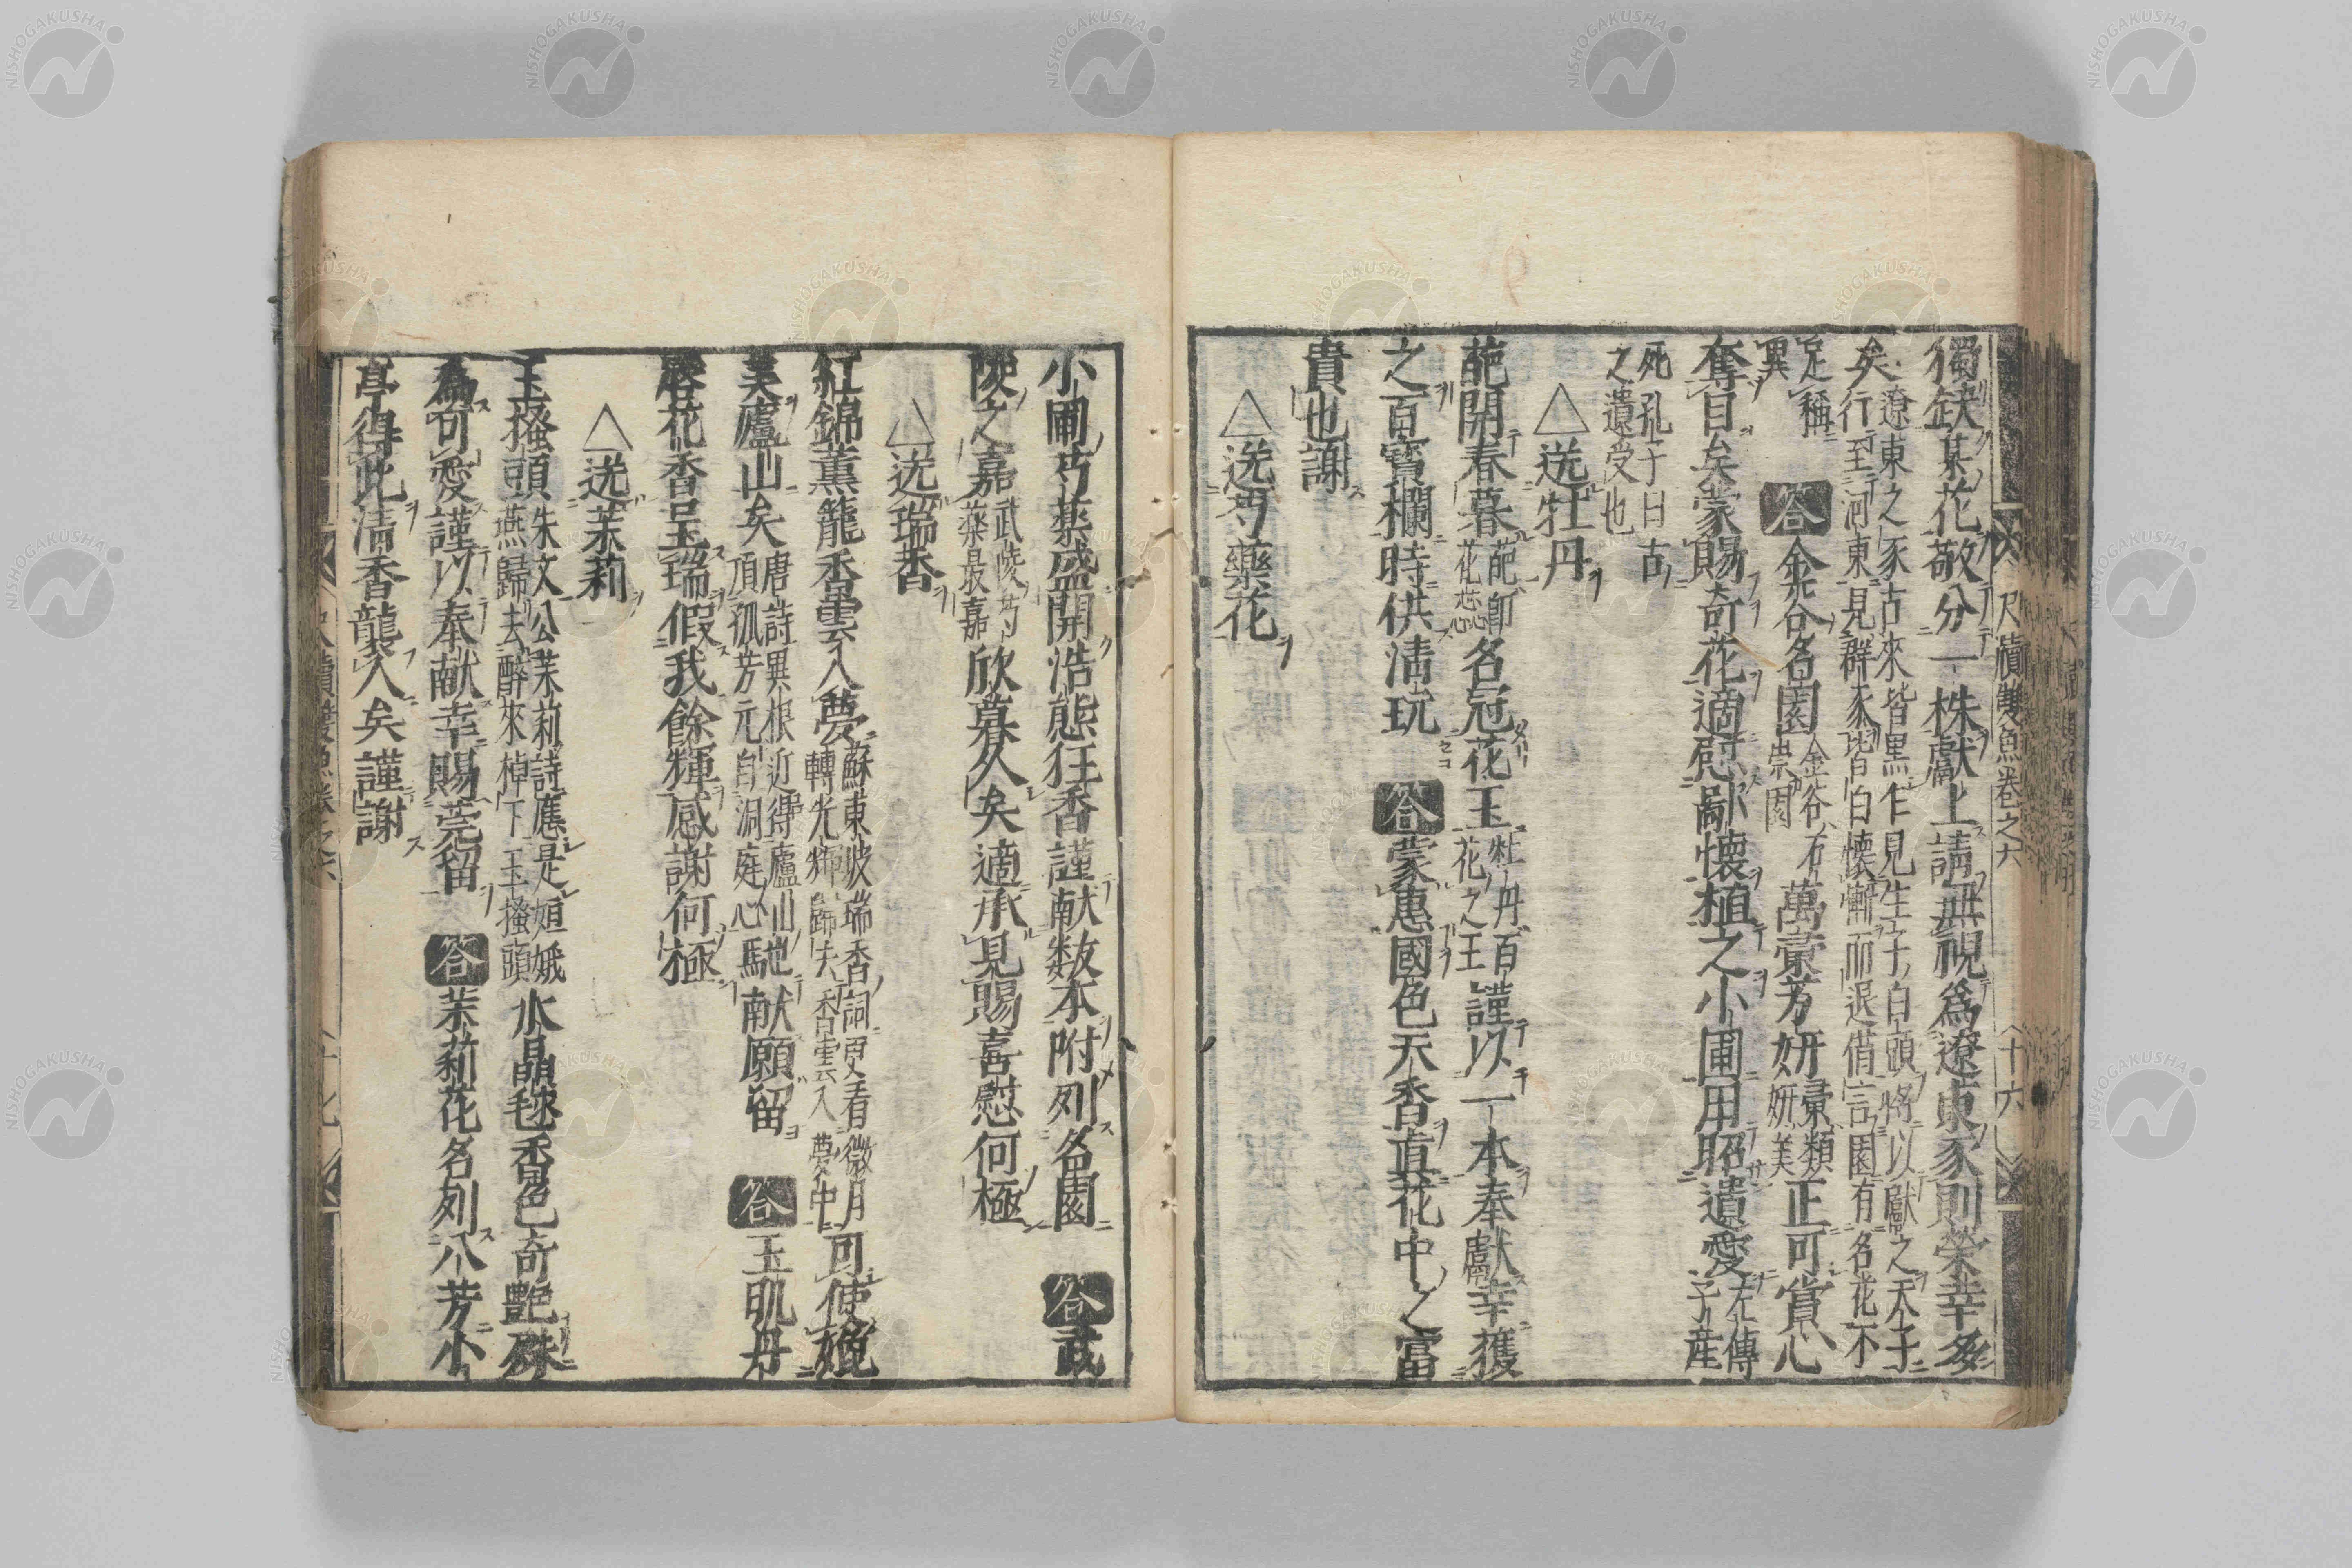 獨缺某花敬分一株獻上請無視爲遼東豕則榮幸多
矣遼東之豕古來皆黑乍見生子白頭將以獻之天子行至河東見群豕皆白懷慚而退借言園有名花不
足稱異 答金谷名園金谷石崇園萬彙芳妍彙類妍美正可賞心
奪目矣蒙賜奇花適慰鄙懷植之小圃用昭遺愛左傳子產
死孔子曰古之遺愛也
△送牡丹
葩開春暮葩卽花蕊名冠花王牡丹百花之王謹以一本奉獻幸獲
之百寶欄時供淸玩 答蒙惠國色天香直花中之富
貴也謝
△送芍藥花
尺牘雙魚卷之六 十六
小圃芍藥盛開浩態狂香謹献数本附列名園 答武
陵之嘉武陵芍藥最嘉欣慕久矣適承見賜喜慰何極
△送瑞香
紅錦薰籠香雲入夢蘇東坡瑞香詞更看微月轉光輝歸去香雲入夢中可使媲
美廬山矣唐詩異根近得廬山地頂孤芳元自洞庭心馳献願留 答玉肌丹
唇花香呈瑞假我餘輝感謝何極
△送茉莉
玉搔頭朱文公茉莉詩應是姮娥燕歸去醉來棹下玉搔頭水晶毬香色奇艷殊
爲可愛謹以奉献幸賜莞留 答茉莉花名列八芳小
亭得此淸香襲入矣謹謝
尺牘雙魚卷之六 十七
NISHOGAKUSHA